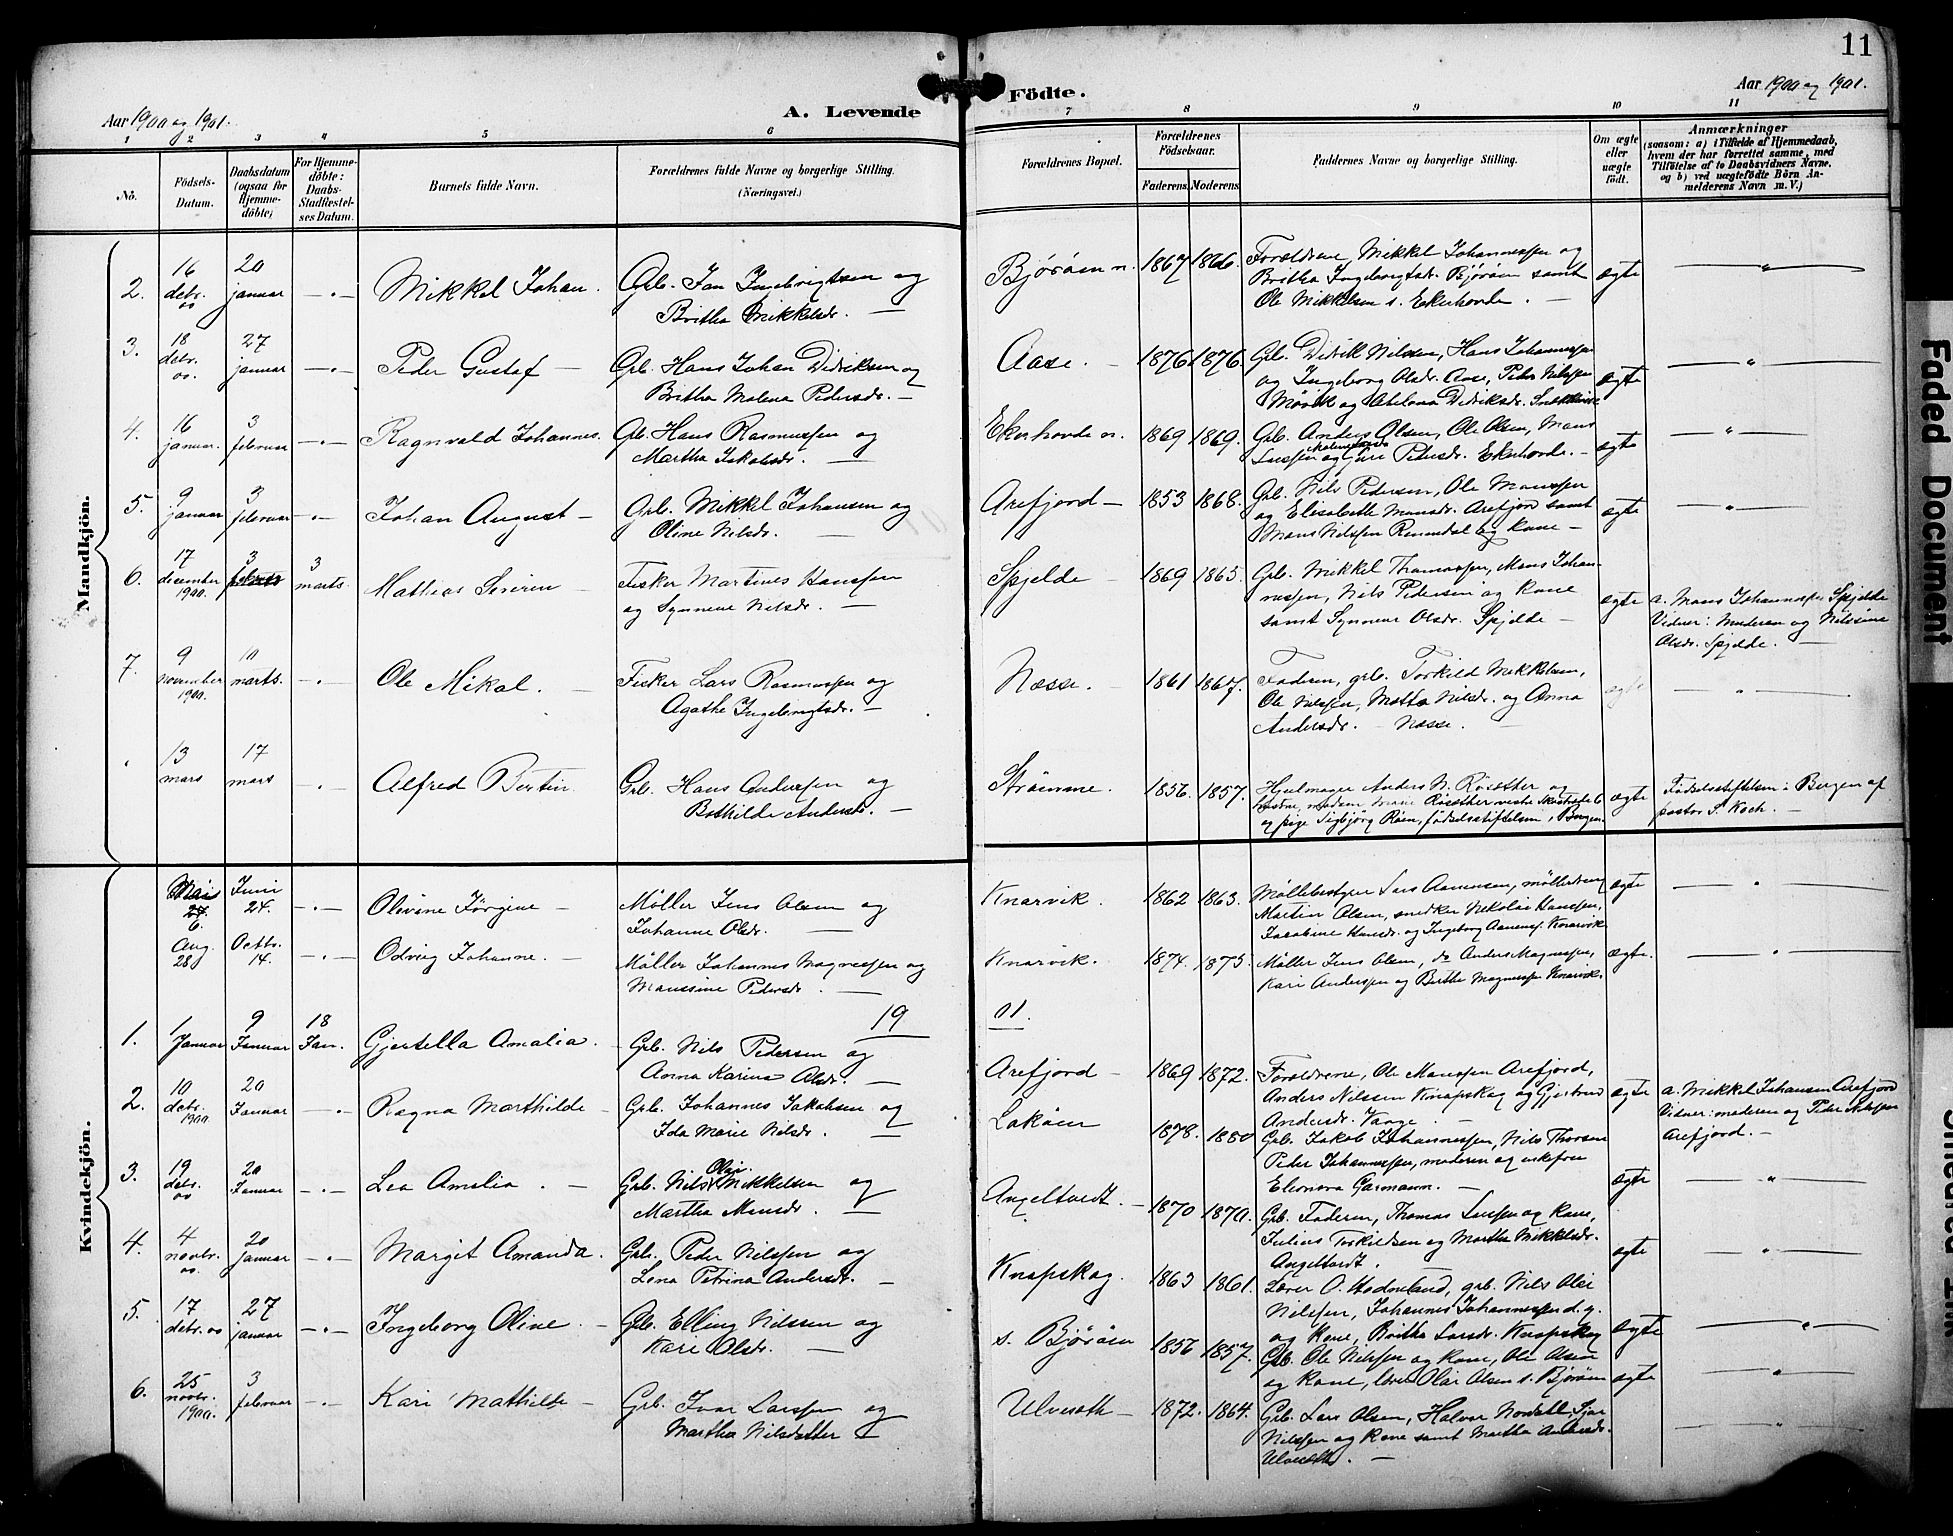 11
Aar 1900 og 1901.
A. Levende
Födte.
Aar 1900 og 1901.
1 2 3 4 5 6 7 8 9 10 11
No.
Födsels-
Datum.
Daabsdatum
(ogsaa for
Hjemme-
döbte)
For Hjemme-
döbte:
Daabs-
Stadfæstel-
ses Datum.
Barnets fulde Navn.
Forældrenes fulde Navne og borgerlige Stilling.
(Næringsvei.)
Forældrenes Bopæl.
Forældrenes
Födselsaar.
Faderens. Moderens.
Faddernes Navne og borgerlige Stilling.
Om ægte
eller
uægte
födt.
Anmærkninger
(saasom: a) i Tilfælde af Hjemmedaab,
hvem der har forrettet samme, med
Tilföielse af to Daabsvidners Navne,
og b) ved uægtefödte Börn An-
melderens Navn m. V.)
Mandkjön.
2. 16 decbr. 00 20 januar Mikkel Johan. Grb. Jan Ingebrigtsen og
Britha Mikkelsdr.
Bjøröen n. 1867 1866. Forældrene, Mikkel Johannessen og
Britha Ingebrigtsdr. Björöen samt
Ole Mikkelsen s. Ekerhovde. ægte
3. 18 decbr. 00. 27 januar Peder Gustaf Grb. Hans Johan Didriksen og
Britha Malena Pedersdr.
Aase. 1876 1876. Grb. Didrik Nilssen, Hans Johannessen
og Ingeborg Olsdr. Aase, Peter Nilssen
Mövik og Didriksdr. ægte
4. 16 januar. 3 februar Ragnvald Johannes. Gb. Hans Rasmussen og
Martha Jakobsdr.
Ekerhovde n. 1869 1869. Grb. Anders Olsen, Ole Olsen, Mons
Larssen og Pedersdr. Ekerhovde. ægte
5. 9 januar 3 februar Johan August Grb. Mikkel Johansen og
Oline Nilsdr.
Arefjord 1853 1868. Grb. Nils Pedersen, Ole Monssen
og Elisabeth Monsdr. Arefjord samt
Mons Nilssen og kone ægte
6. 17 december 1900. 3 3 marts. Mathias Severin Fisker Martines Hanssen
og Synneve Nilsdr.
Spjelde 1869 1865. Grb. Mikkel Thomassen, Mons Johan-
nessen, Nils Pedersen og kone
samt Synneve Olsdr. Spjelde ægte a. Mons Johannessen Spjelde
Vidner: moderen og Nilsine
Olsdr. Spjelde.
7. 9 november 1900. 10 marts. Ole Mikal. Fisker Lars Rasmussen og
Agathe Ingebrigtsdr.
Næsse. 1861 1867. Faderen, grb. Torkild Mikkelsen,
Ole Nilssen, Nilsdr. og Anna
Andersdr. Næsse. ægte
13 mars 17 mars Alfred Bertin. Grb. Hans Andersen og
Bothilde Andersdr.
Strömme. 1856. 1857. Hjulmager Anders N. Rösether og
og pige födselsstiftelsen i Bergen. ægte Födselsstiftelsen i Bergen af
pastor S. Koch.
Kvindekjön.
6. Juni 24. Olevine Jörgine Möller Jens Olsen og
Johanne Olsdr.
Knarvik. 1862 1863. Möllebestyrer Lars Aamensen,
Martin Olsen, snedker Nikolai Hanssen,
og Ingeborg Knarvik. ægte
Aug. 28 Octbr. 14. Odvig Johanne. Möller Johannes Magnussen og
Monssine Pedersdr.
Knarvik. 1874. 1875. Möller Jens Olsen, do Anders Magnussen,
Kari Anderssen og Berthe Magnussen Knarvik. ægte.
19 01.
1. 1 Januar 9 Januar 18 Jan. Gjertella Amalia. Grb. Nils Pedersen og
Anna Karina Olsdr.
Arefjord 1869 1872. Forældrene, Ole Monssen Arefjord,
Anders Nilssen Knapskog og Gjertrud
Andersdr. Vange. ægte a. Mikkel Johansen Arefjord
Vidner: moderen og Peder Nilssen
Arefjord.
2. 10 decbr. 1900. 20 Januar Ragna Marthilde Grb. Johannes Jakobsen og
Ida Marie Nilsdr.
Loköen 1878. 1880 Grb. Jakob Johannessen, Nils Thorsen
Peder Johannessen, moderen og enkefrue
Eleonora Garmann. ægte
3. 19 decbr. 00 20 Januar Lea Amalia. Grb. Nils Olai Mikkelsen og
Martha Monsdr.
Angeltvedt. 1870 1870. Grb. Faderen, Thomas Larssen og kone,
Julius Torkildsen og Martha Mikkelsdr.
Angeltvedt. ægte
4. 4 novbr. 00. 20 januar Margit Amanda. Grb. Peder Nilssen og
Lena Petrina Andersdr.
Knapskog. 1863 1861. Lærer O. Hodneland, grb. Nils Olai
Nilssen, Johannes Johannessen d. y.
og kone, Britha Larsdr. Knapskog ægte
5. 17 decbr. 00 27 januar Ingeborg Oline. Grb. Elling Nilssen og
Kari Olsdr.
s. Björöen 1856 1857. Grb. Ole Nilssen og kone, Ole Olsen
og kone, lærer Olai Olsen s. Björöen ægte
6. 25 novbr. 1900. 3 februar Kari Mathilde Grb. Ivar Larssen og
Martha Nilsdatter
Ulvesæth 1872. 1864. Grb. Lars Olsen, Halvor
Nilssen og kone samt Martha Andersdr.
Ulvesæth.
Faded Document